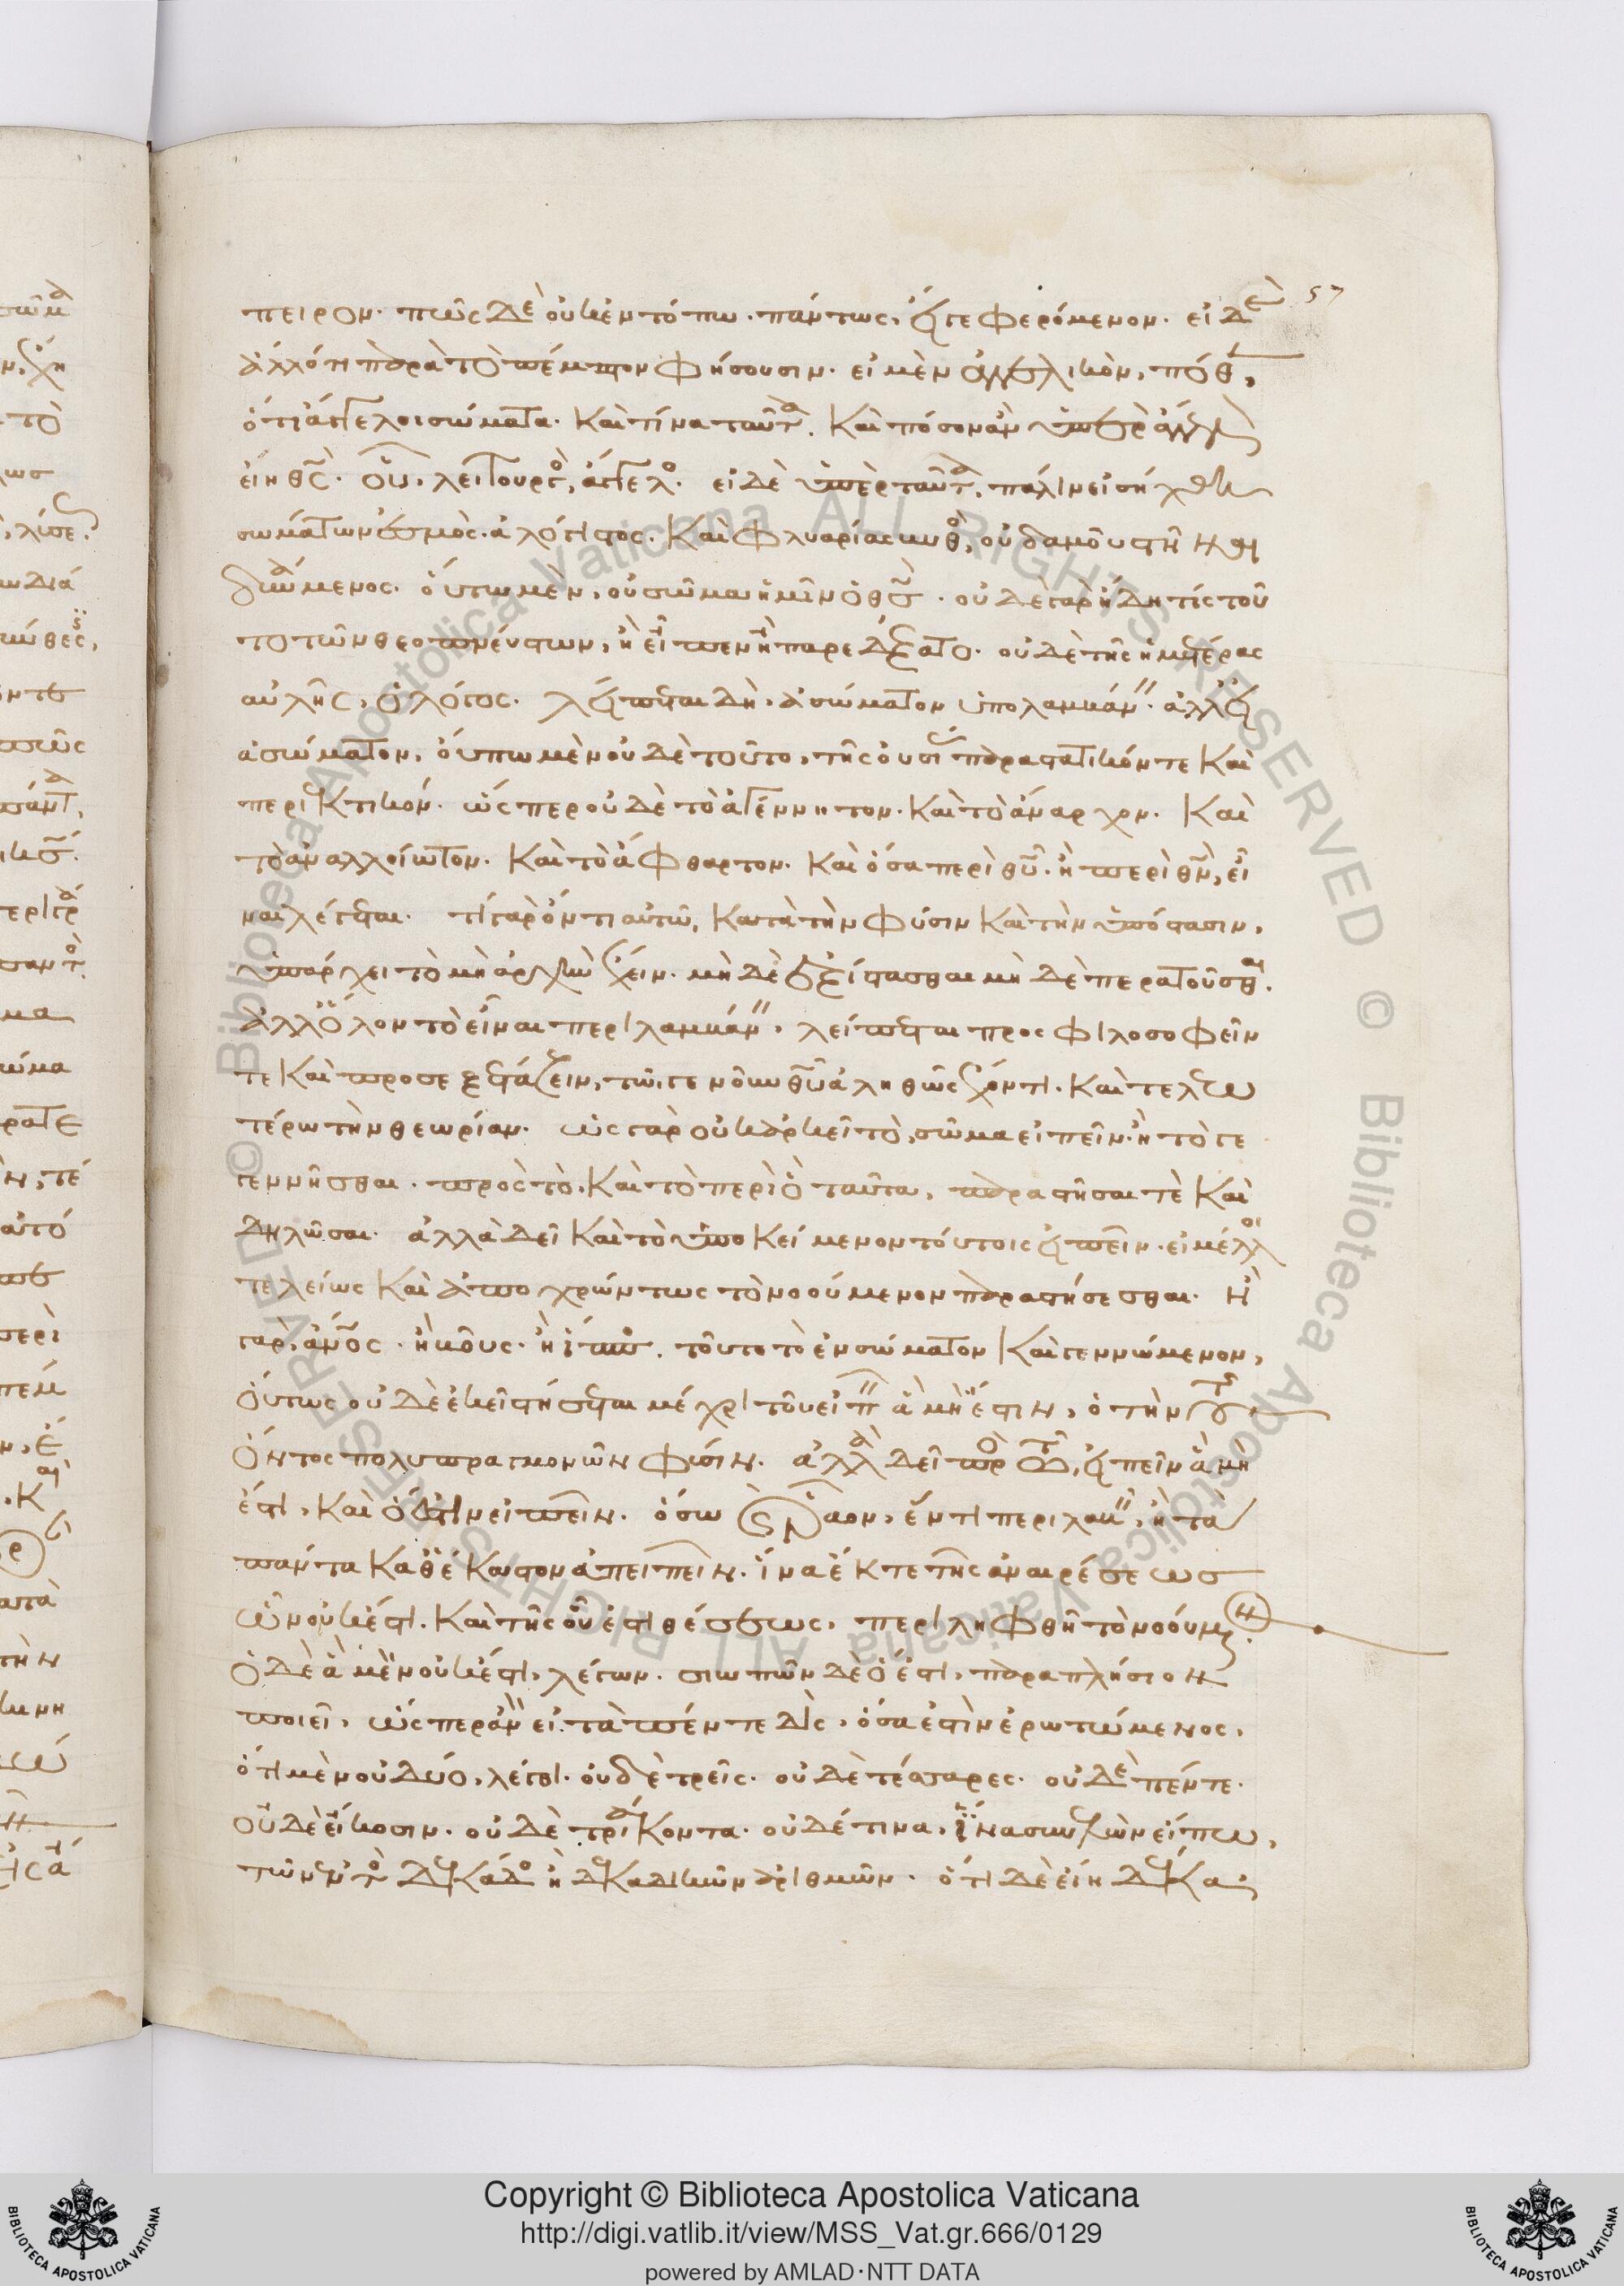 57
πειρον. πῶς δὲ οὐκ ἐν τόπω. πάντως, εἴγε φερόμενον. εἰ δὲ
ἄλλό τι παρὰ τὸ πέμπτον φήσουσιν. εἰ μὲν ἀγγελικὸν, πόθ,
ὅτι ἄγγελοι σώματα. καὶ τίνα ταῦτα. καὶ πόσον ἂν ὑπὲρ ἄγγελ
εἴη θς. οὗ, λειτουργὸς, ἄγγελος. εἰ δὲ ὑπὲρ ταῦτα, πάλιν εἰσήχθη
σωμάτων ἐσμὸς ἀλόγιστος. καὶ φλυαρίας βυθὸς, οὐδαμοῦ στῆναι
δυνάμενος. οὕτω μὲν, οὐ σῶμα ἡμῖν ὁ θς. οὐδὲ γὰρ ἤδη τὶς τοῦ
το τῶν θεοπνεύστων, ἢ εἶπεν ἢ παρεδέξατο. οὐδὲ τῆς ἡμετέρας
αὐλῆς, ὁ λόγος. λείπεται δὴ, ἀσώματον ὑπολαμβάνειν. ἀλλ' εἰ
ἀσώματον, οὔπω μὲν οὐδὲ τοῦτο, τῆς οὐσίας παραστατικόν τε καὶ
περιεκτικόν. ὥς περ οὐδὲ τὸ ἀγέννητον. καὶ τὸ ἄναρχον. καὶ
τὸ ἀναλλοίωτον. καὶ τὸ ἄφθαρτον. καὶ ὅσα περὶ θυ. ἢ περὶ θν, εἶ
ναι λέγεται. τί γὰρ ὄντι αὐτῶ, κατὰ τὴν φύσιν καὶ τὴν ὑπόστασιν,
ὑπάρχει τὸ μὴ ἀρχὴν ἔχειν. μὴ δὲ ἐξίστασθαι μὴ δὲ περατοῦσθαι.
ἀλλ' ὅλον τὸ εἶναι περιλαμβάνειν, λείπεται προσφιλοσοφεῖν
τε καὶ προσεξετάζειν, τῶ γε νοῦν θυ ἀληθῶς ἔχοντι. καὶ τελεω
τέρω τὴν θεωρίαν. ὡς γὰρ οὐκ ἀρκεῖ τὸ, σῶμα εἰπεῖν. ἢ τὸ γε
γεννῆσθαι. πρὸς τὸ, καὶ τὸ περὶ ὃ ταῦτα, παραστῆσαι τὲ καὶ
δηλῶσαι. ἀλλὰ δεῖ καὶ τὸ ὑποκείμενον τούτοις εἰπεῖν. εἰ μέλλοι
τελείως καὶ ἀποχρώντως τὸ νοούμενον παραστήσεσθαι. ἢ
γὰρ, ἀνος. ἢ βοῦς. ἢ ἵππος. τοῦτο τὸ ἐνσώματον καὶ γεννώμενον,
οὕτως οὐδὲ ἐκεῖ στήσεται μέχρι τοῦ εἰπεῖν ἃ μή ἐστιν, ὁ τὴν τοῦ
ὄντος πολυπραγμονῶν φύσιν. ἀλλὰ δεῖ πρὸς τῶ, εἰπεῖν ἃ μή
ἐστι, καὶ ὅ ἐστιν εἰπεῖν. ὅσω καὶ ῥᾶον, ἕν τι περιλαβεῖν, ἢ τὰ
πάντα καθ' ἕκαστον ἀπειπεῖν. ἵνα ἔκ τε τῆς ἀναιρέσεως
ὧν οὐκ ἐστι. καὶ τῆς οὗ ἐστι θέσεως, περιληφθῆ τὸ νοούμενον.
ὁ δὲ ἃ μὲν οὐκ ἐστι, λέγων. σιωπῶν δὲ ὅ ἐστι, παραπλήσιον
ποιεῖ, ὥς περ ἂν εἰ τὰ πέντε δὶς, ὅσα ἐστὶν ἐρωτώμενος,
ὅτι μὲν οὐ δύο, λέγει. οὐδὲ τρεῖς. οὐδὲ τέσσαρες. οὐδὲ πέντε.
οὐδὲ εἴκοσιν. οὐδὲ τριάκοντα. οὐδέ τινα, ἵνα συνελὼν εἴπω,
τῶν ἐντὸς δεκάδος ἢ δεκαδικῶν ἀριθμῶν. ὅτι δὲ εἴη δέκα,
Copyright © Biblioteca Apostolica Vaticana
http://digi.vatlib.it/view/MSS_Vat.gr.666/0129
powered by AMLAD·NTT DATA